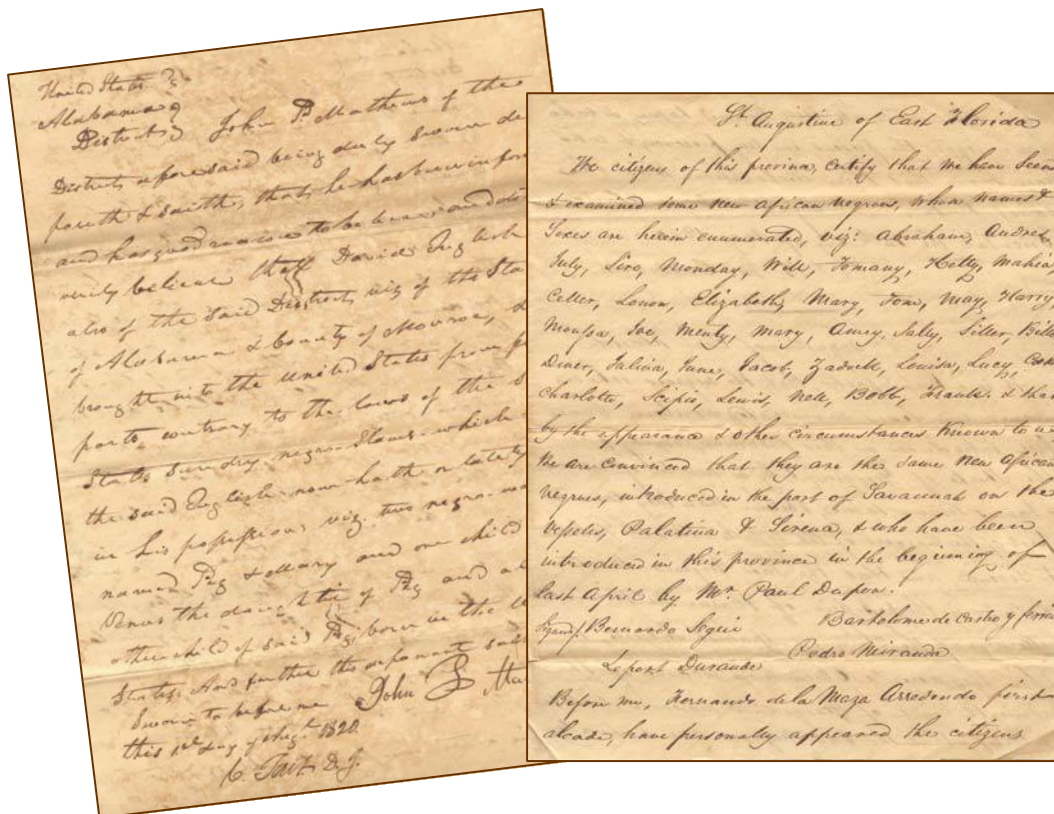 United States
Alabama
District John P. Mathews of the
District aforesaid being duly sworn de
poseth & saith, that he has been infor
and has good reasons to believe and do
verily believe that David English
also of the said District, viz of the Sta
of Alabama & County of Monroe,
brought into the United States from
ports, contrary to the laws of the
States Sundry negro Slaves which
the said English now hath or lately
in his possession, viz. two negro
named Peg & Mary and one child
Venus the daughter of Peg and
other child of said Peg born in the
States, And further this deponent
Sworn to before me John P Ma
this day of Augt. 1820
C. Tait D. J.
St. Augustine of East Florida
We citizens of this province, certify that we have Seen
& examined some new african negroes, whose names &
Sexes are herein enumerated, viz: Abraham, Andrew,
July, Siro, Monday, Will, Tomany, Hetty, Mahia,
Celler, Lonon, Elizabeth, Mary, Tom, May, Harry,
Monssa, Joe, Menty, Mary, Amey, Salty, Siller, Bill
Diner, Salina, June, Jacob, Zadock, Louisa, Lucy,
Charlotte, Scipio, Lewis, Nell, Bobb, Frank. & that
by the appearance & other circumstances Known to u
We are convinced that they are the same new African
negroes, introduced in the port of Savannah on the
vessels, Palatina & Sirena, & who have been
introduced in this province in the beginning of
last April by Mr. Paul Dupon.
Signed/ Bernardo Segui Bartolome de Castro y ferre
Pedro Miranda
Durande
Before me, Fernando de la Maza Arredondo first
alcade, have personally appeared the citizens